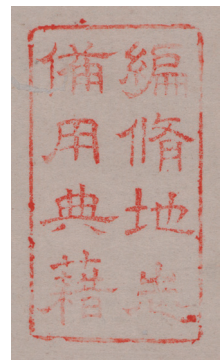 編脩地志
備用典籍